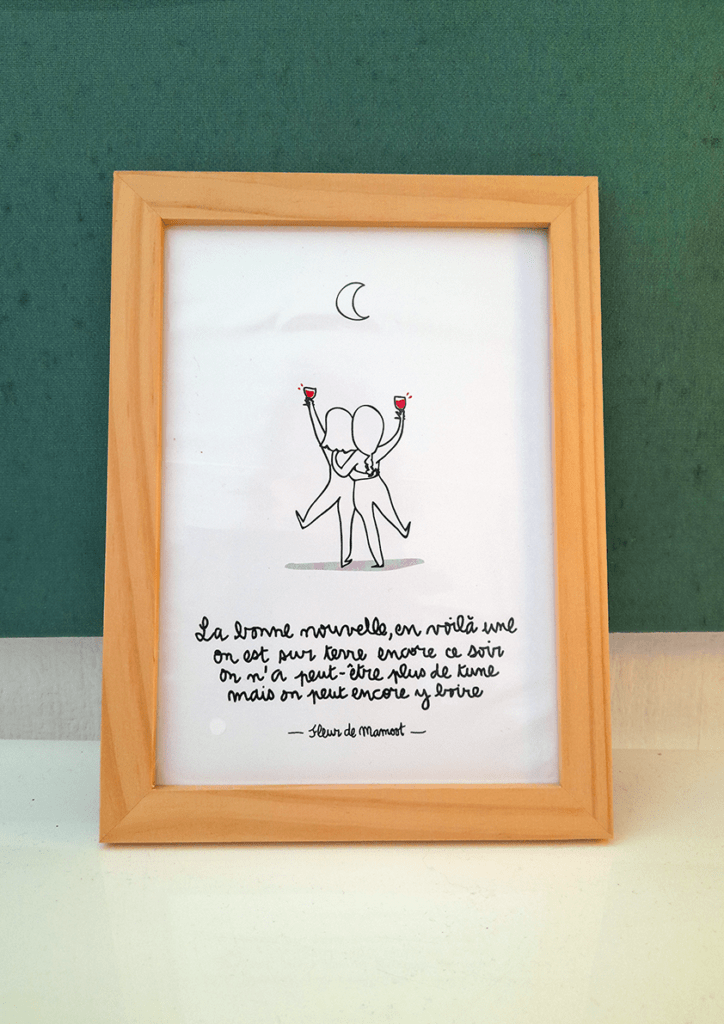 La bonne nouvelle, en voilà une
on est sur terre encore ce soir
on n'a peut-être plus de tune
mais on peut encore y boire
— Fleur de Mamoot —